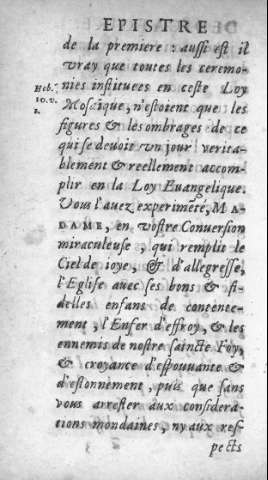 EPISTRE
de la premiere : aussi est il
vray que toutes les ceremo-
nies instituees en ceste Loy
Heb.
10. v.
1.
Mosaique, n'estoient que les
figures & les ombrages de ce
qui se devoit un jour verita-
blement & reellement accom-
plir en la Loy Euangelique.
Vous l'auez experimẽté, MA-
DAME, en vostre Conuersion
miraculeuse, qui remplit le
Ciel de joye, & d'allegresse,
l'Eglise auec ses bons & fi-
delles enfans de contente-
ment, l'Enfer d'effroy, & les
ennemis de nostre saincte Foy,
& croyance d'espouuante &
d'estonnement, puis que sans
vous arrester aux considera-
tions mondaines, ny aux res-
pects